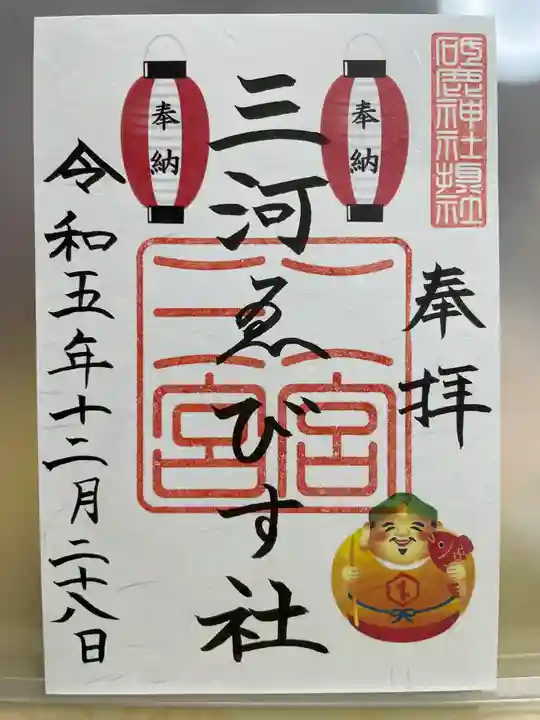 砥鹿神社摂社
奉拝
奉納
奉納
三河ゑびす社
一宮
二宮
令和五年十二月二十八日